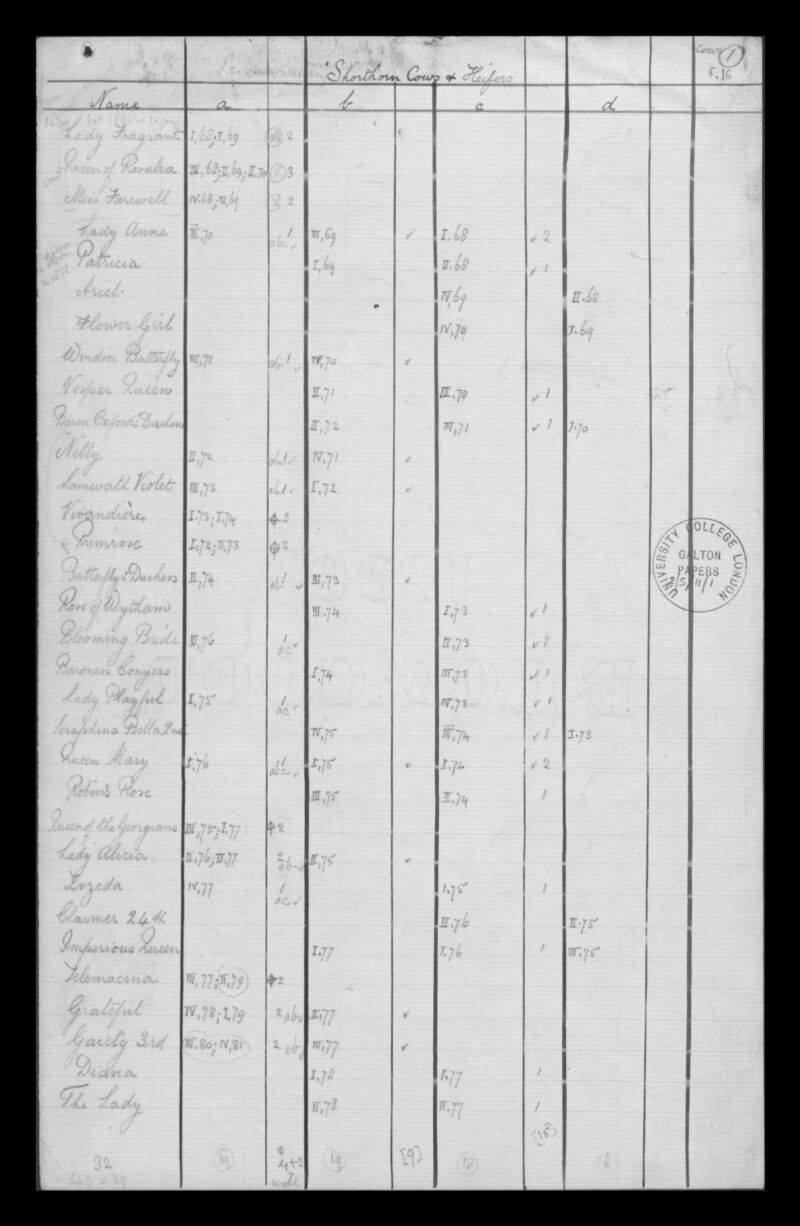 Cows 1
f.16
Shorthorn Cows & Heifers
Name a b c d
Lady Fragrant I,68; I,69 2
Queen of Rosalea III,68; II,69; II,70 3
Miss Farewell IV.68; III,69 2
Lady Anne III,70 1 abc ✓ III,69 ✓ I.68 ✓ 2
Patricia I,69 II.68 ✓ 1
Ariel. IV,69 II.68
Flower Girl IV,70 I.69
Windsor Butterfly III,71 ab 1 ✓ IV,70 ✓
Vesper Queen II,71 III,70 ✓ 1
Baron Oxford's Duchess II,72 III,71 ✓ 1 I.70
Nelly II,72 ab 1 ✓ IV,71 ✓
Lamwath Violet III,73 ab 1 ✓ I,72 ✓
Vivandière I.73; I,74 2
Primrose I,72; II,73 2
Butterfly's Duchess II,74 ab 1 ✓ III,73 ✓
Rose of Wytham III.74 I,73 ✓ 1
Blooming Bride IV,76 1 ac ✓ II,73 ✓ 1
Baroness Conyers I.74 III.73 ✓ 1
Lady Playful I,75 1 ac ✓ IV,73 ✓ 1
Seraphina Bella 2nd IV,75 III,74 ✓ 1 I.73
Queen Mary I,76 1 abc ✓ I,75 ✓ I.74 ✓ 2
Robin's Rose III,75 II.74 1
Queen of the Georgians III,75; I,77 2
Lady Alicia II,76; II.77 2 ab ✓ II,75 ✓
Zozeda IV,77 1 ac ✓ I.75 1
Charmer 24th II.76 II.75
Imperious Queen I.77 I.76 1 III.75
Telemacina III,77; II,79 2
Grateful IV,78; I,79 2 ab ✓ II,77 ✓
Gaiety 3rd III.80; IV,81 2 ab ✓ III,77 ✓
Diana I,78 I.77 1
The Lady II,78 II,77 1
[15]
32 19 [9] 18 6
UNIVERSITY COLLEGE LONDON
GALTON
PAPERS
2/5/11/1